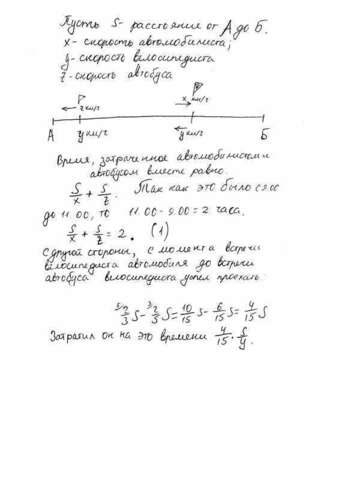 Пусть S- расстояние от А до Б.
x- скорость автомобилиста;
y- скорость велосипедиста
z- скорость автобуса
z км/г x км/г
А y км/г y км/г Б
Время, затраченное автомобилистом и
автобусом вместе равно.
S/x + S/z. Так как это было с 9.00
до 11.00, то 11.00 - 9.00 = 2 часа.
S/x + S/z = 2. (1)
С другой стороны, с момента встречи
велосипедиста автомобиля до встречи
автобуса велосипедиста успел проехать:
5/ 2/3 S - 3/ 2/5 S = 10/15 S - 6/15 S = 4/15 S
Затратил он на это времени 4/15 · S/y.